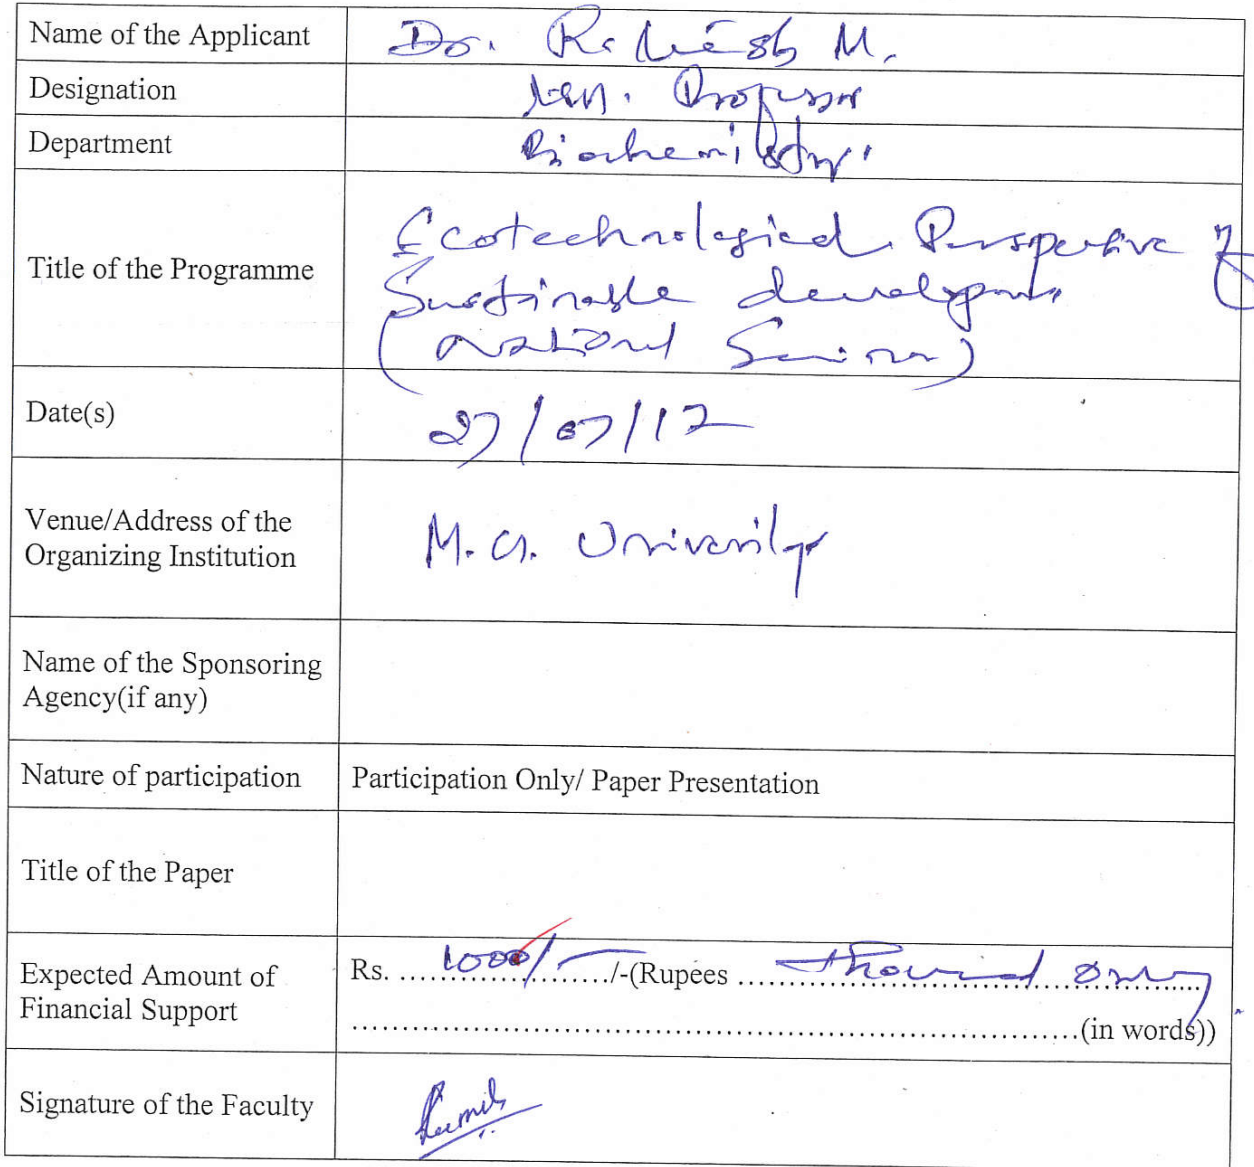 Name of the Applicant Dr. M.
Designation Professor
Department Biochemistry
Title of the Programme
Ecotechnological Perspective of
Sustainable development
(National Seminar)
Date(s) 27/07/17
Venue/Address of the
Organizing Institution
M.G. University
Name of the Sponsoring
Agency(if any)
Nature of participation Participation Only/ Paper Presentation
Title of the Paper
Expected Amount of
Financial Support
Rs. ....1000/-........../-(Rupees ....thousand only....
..........(in words))
Signature of the Faculty